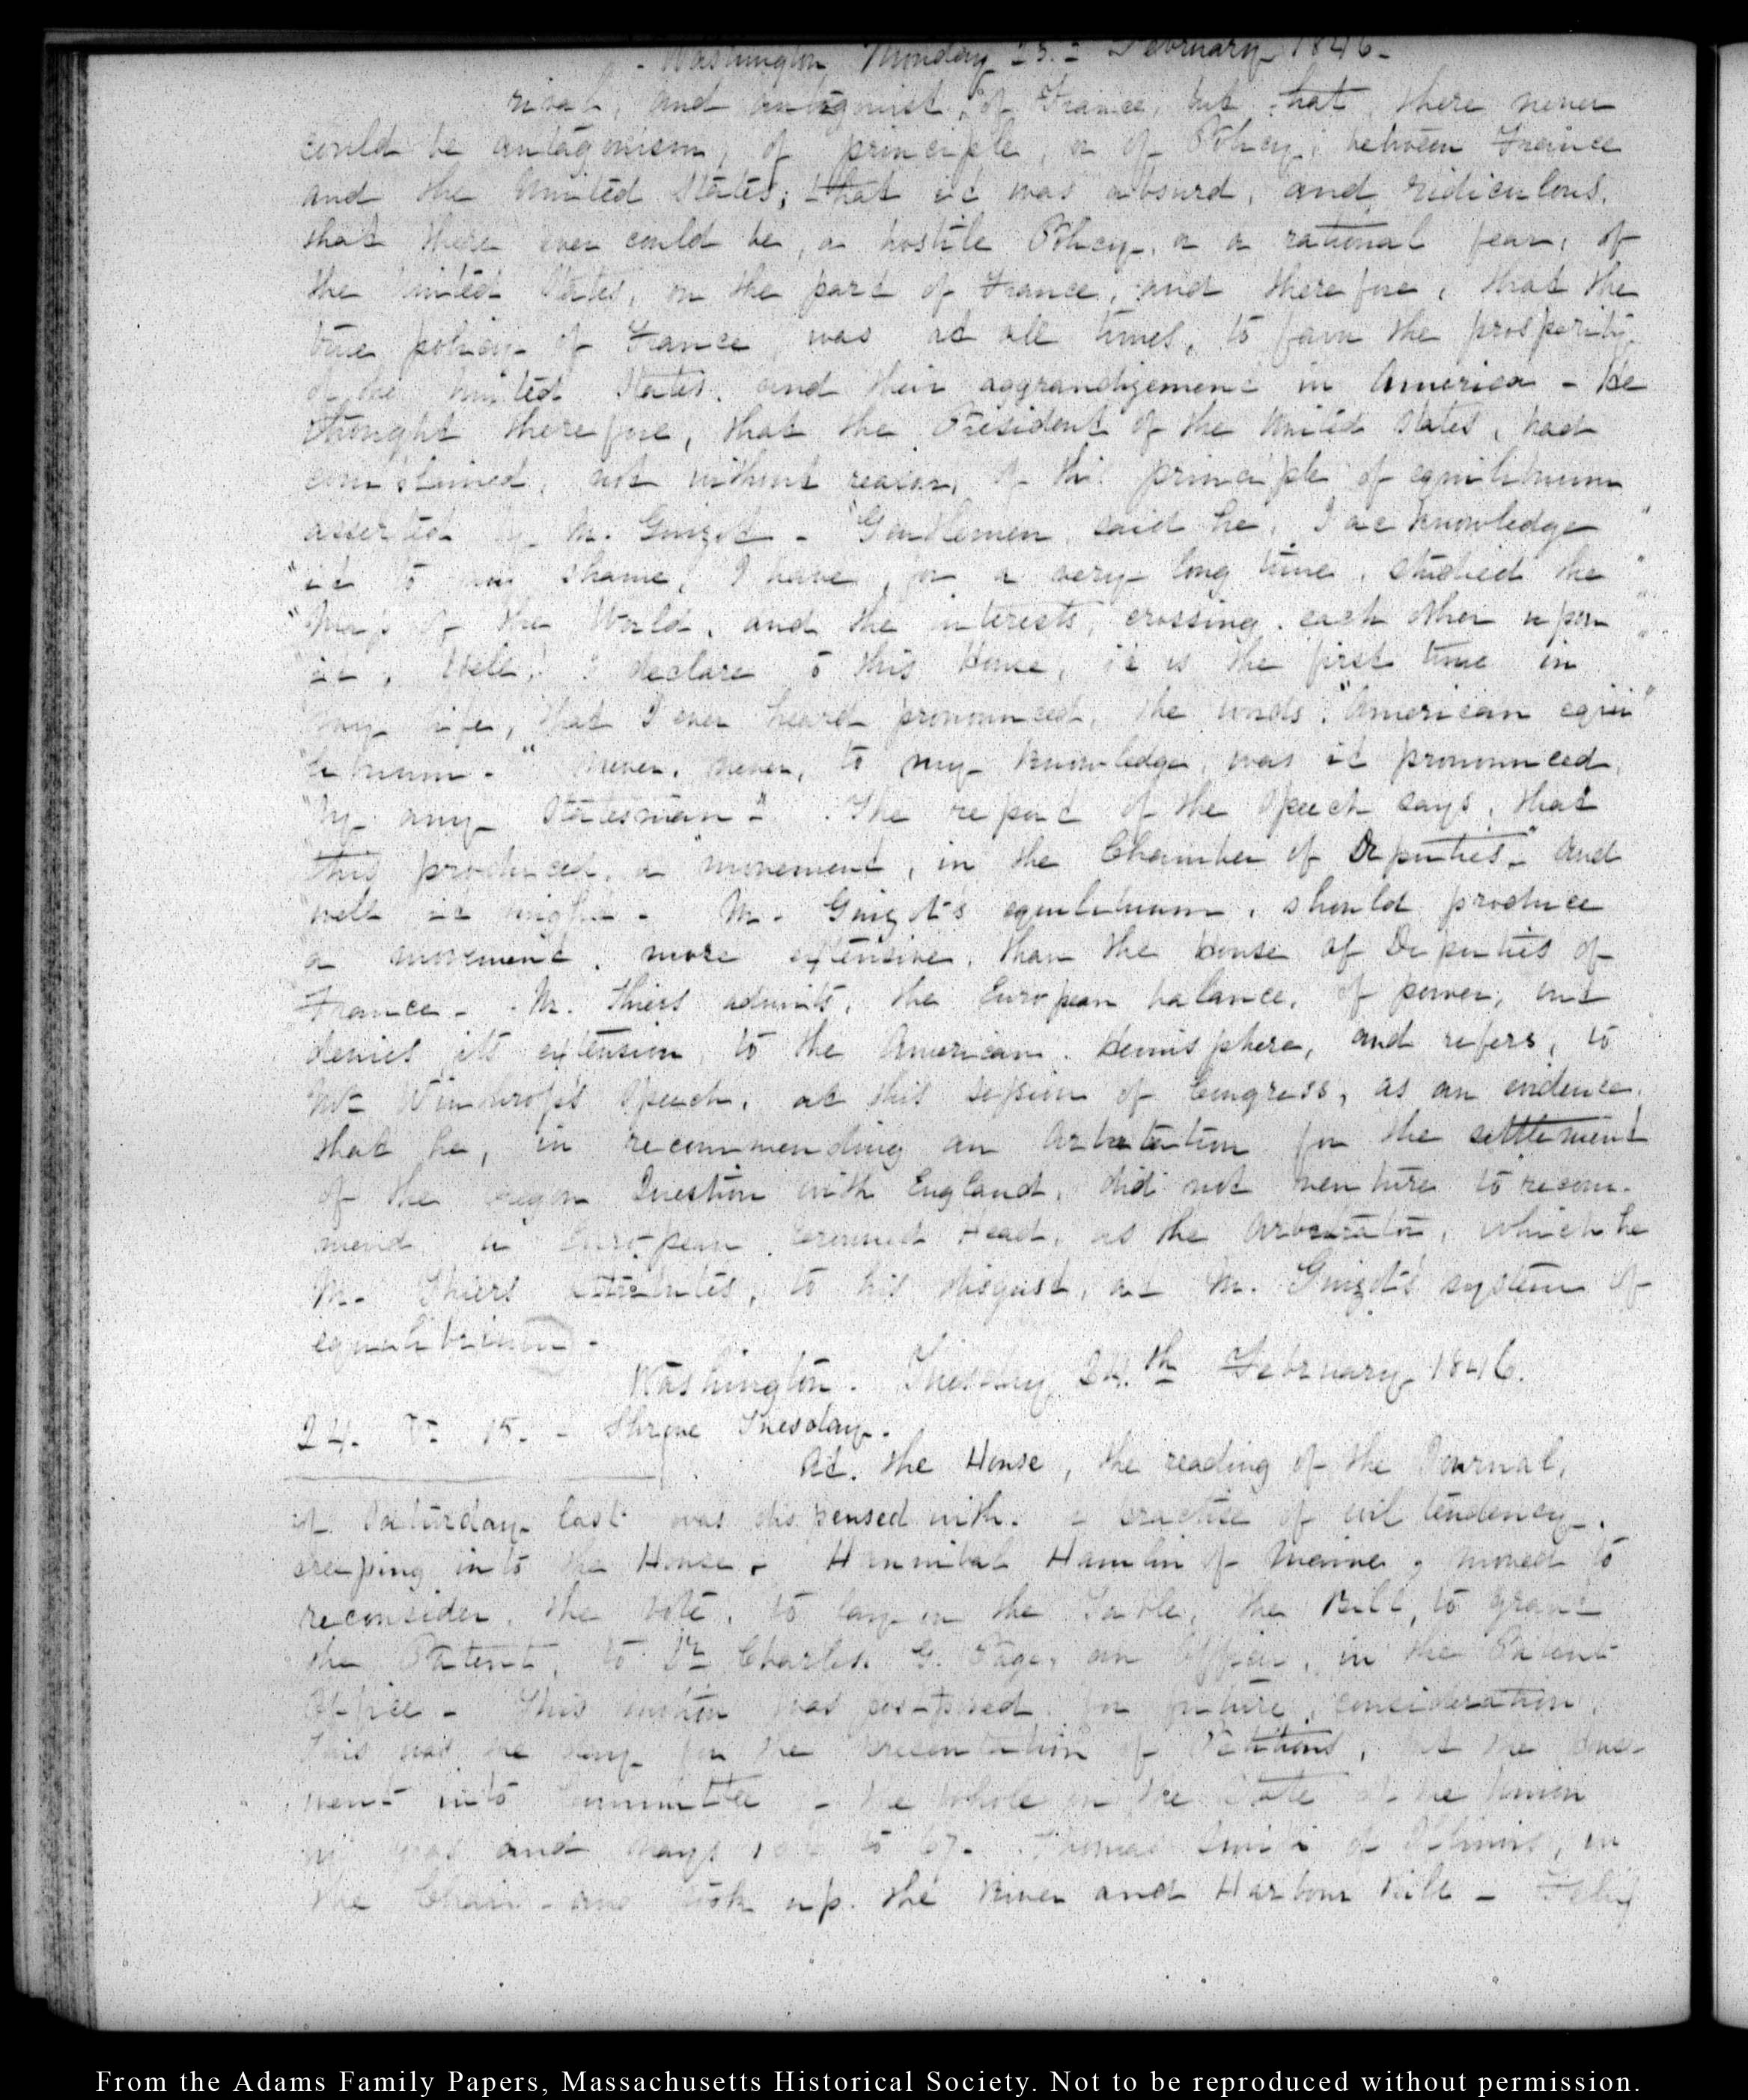 Washington Monday 23. February 1846.
rival, and antagonist, of France, but that there never
could be antagonism, of principle, or of Policy, between France
and the United States; that it was absurd, and ridiculous,
that there ever could be, a hostile Policy, or a rational fear, of
the United States, on the part of France, and therefore, that the
true policy of France, was at all times, to favor the prosperity
of the United States, and their aggrandizement in America - He
thought therefore, that the President of the United States, had
complained, not without reason, of this principle of equilibrium
asserted by M. Guizot - "Gentlemen, said he, I acknowledge "
"it to my shame, I have, for a very long time, studied the "
"Map of the World, and the interests, crossing each other upon "
"it, Well, I declare to this House, it is the first time in
"my life, that I ever heard pronounced, the words "American equi"
"librium." Never, never, to my knowledge, was it pronounced,
"by any Statesman." The report of the speech says, that
this produced, a "movement, in the Chamber of Deputies," and
well it might. M. Guizot's equilibrium, should produce
a movement, more extensive, than the House of Deputies of
France - M. Thiers admits, the European balance, of power, but
denies its extension, to the American Hemisphere, and refers, to
Mr. Winthrop's speech, at this session of Congress, as an evidence,
that he, in recommending an arbitration for the settlement
of the Oregon Question with England, did not venture to recom-
mend a European Crowned Head, as the arbitrator, which he
M. Thiers attributes, to his disgust, at M. Guizot's system of
equilibrium -
Washington. Tuesday 24.th February 1846.
24. V. 15. - Shrove Tuesday.
At the House, the reading of the Journal,
of Saturday last was dispensed with. a practice of evil tendency,
creeping into the House - Hannibal Hamlin of Maine, moved to
reconsider, the vote, to lay on the Table, the Bill, to grant
the Patent, to Dr. Charles G. Page, an Officer, in the Patent
Office - This motion was postponed for future, consideration.
This was the day for the presentation of Petitions, but the House
went into Committee of the whole on the State of the Union
by yeas and nays to 67. Thomas Smith of Illinois, in
the Chair - and took up the River and Harbour Bill -